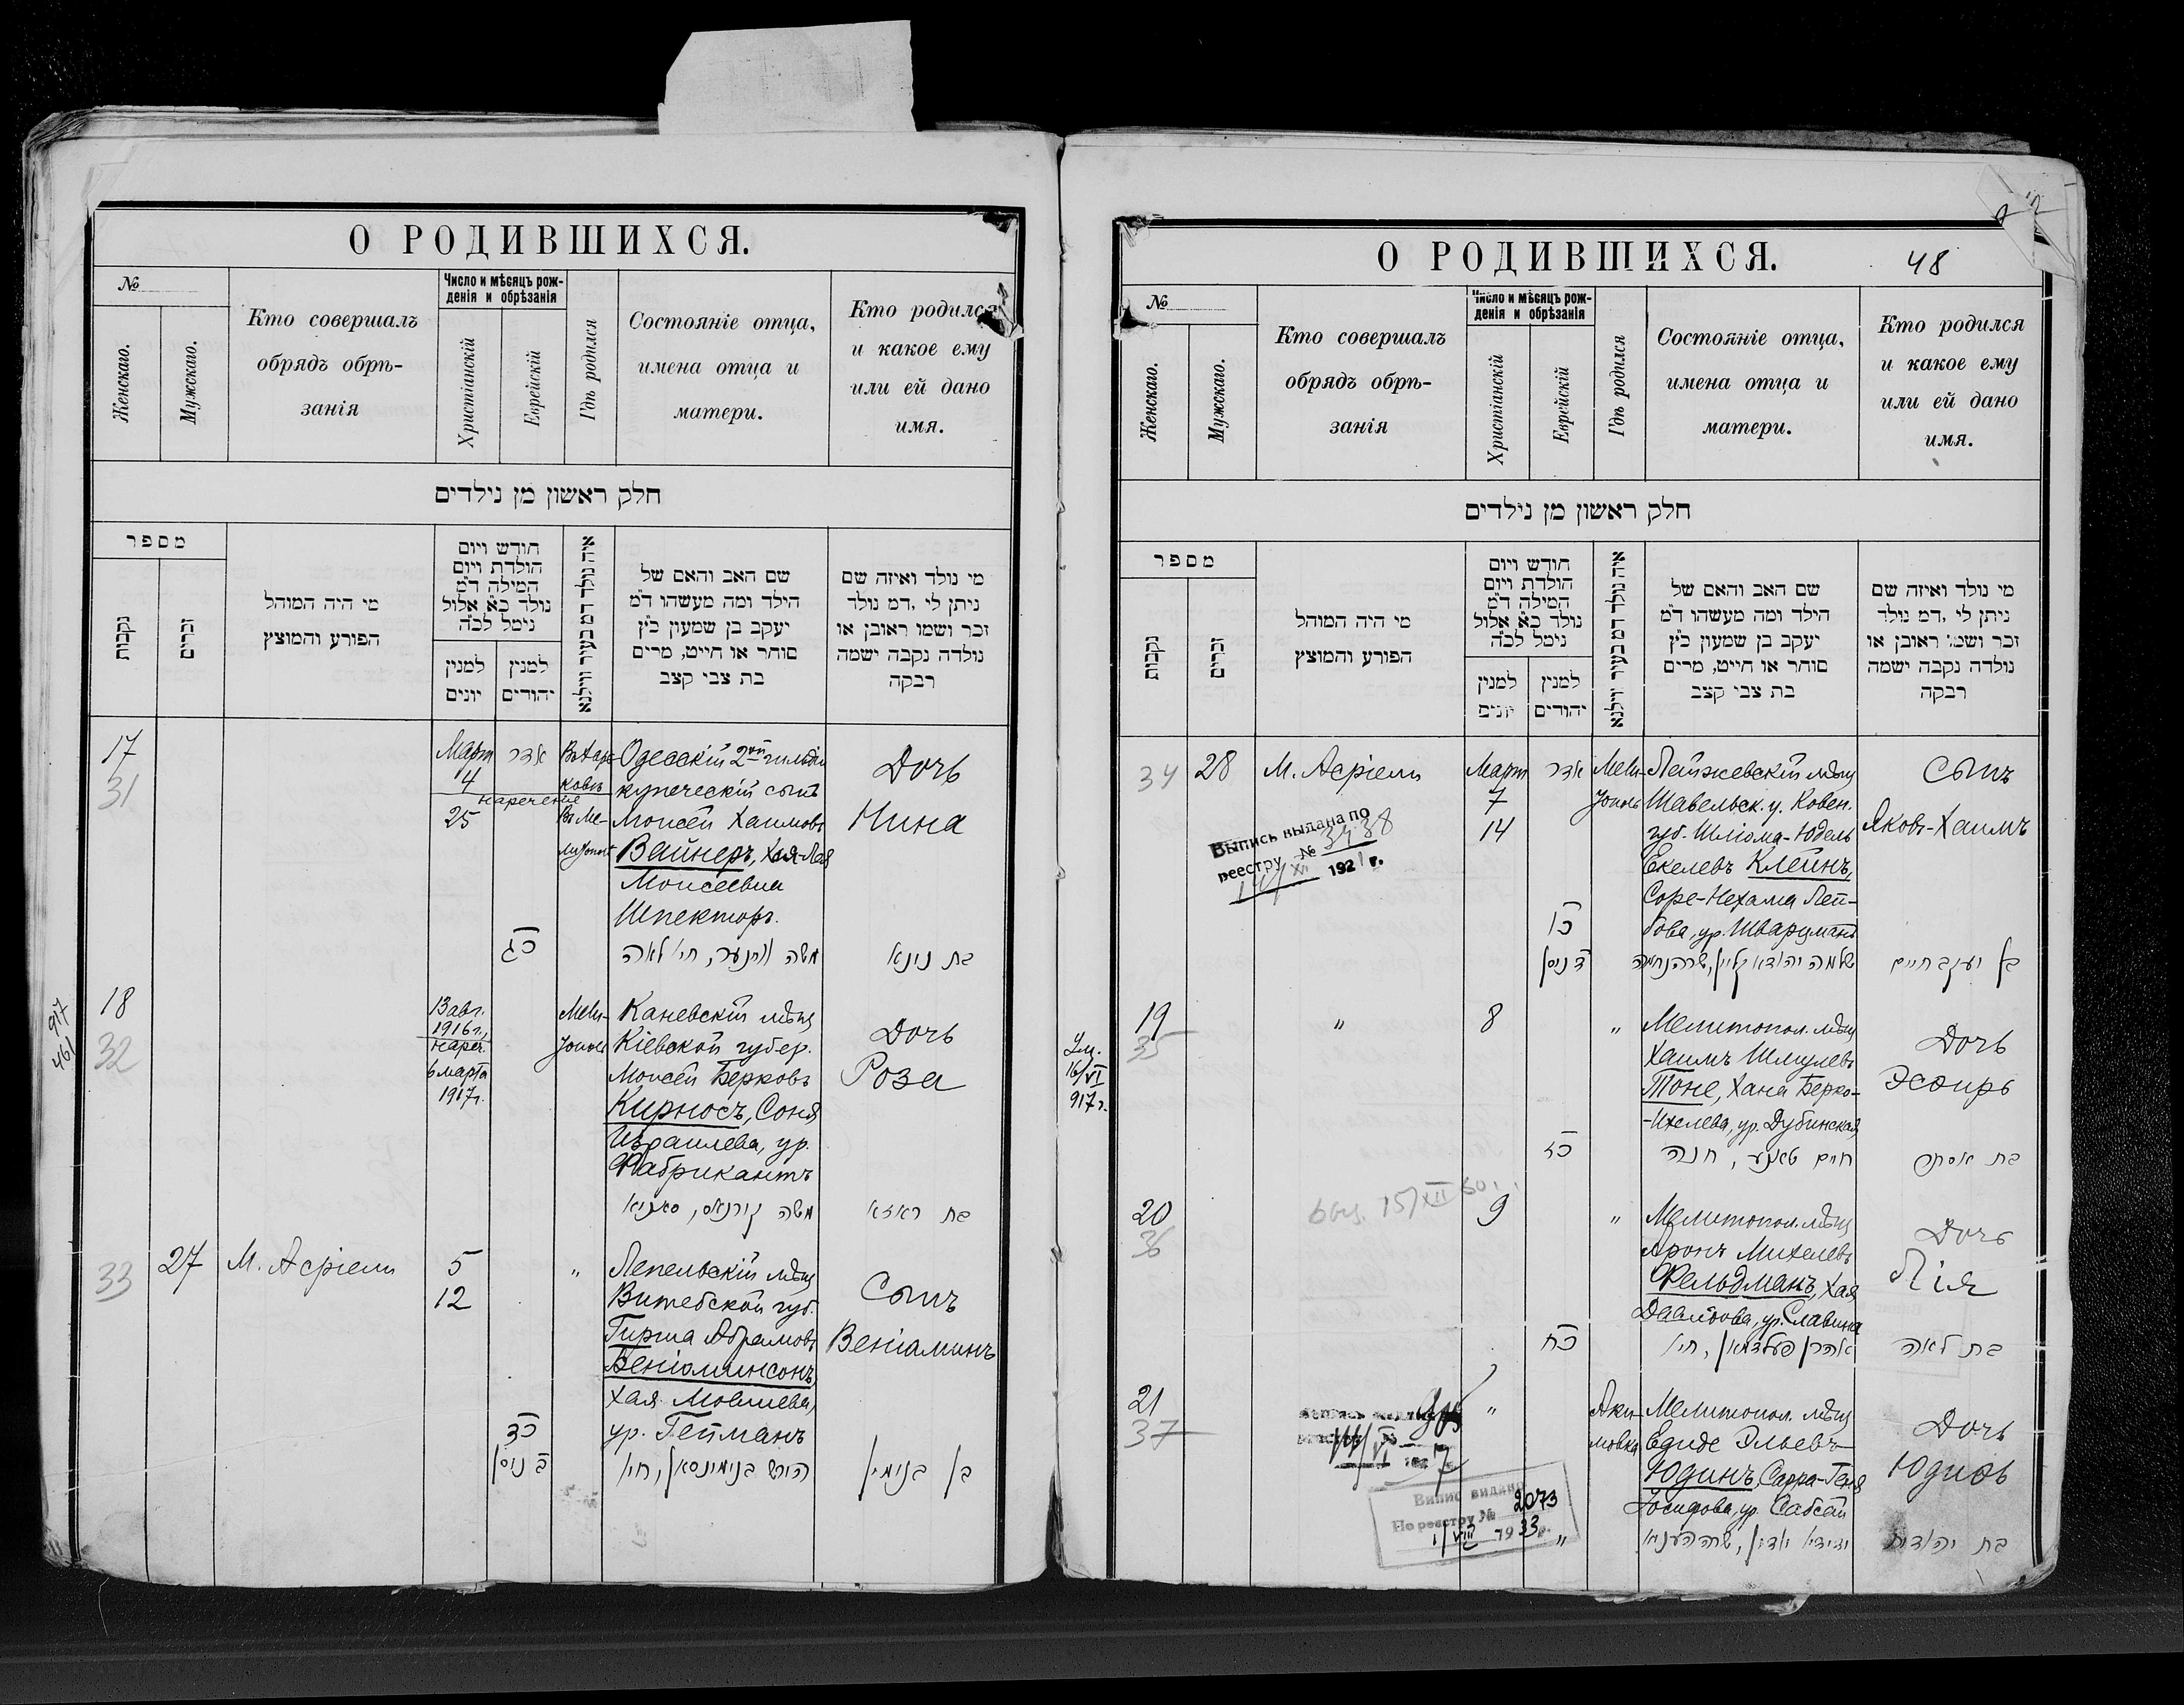 О РОДИВШИХСЯ.
№
Женскаго.
Мужскаго.
Кто совершалъ
обрядъ обрѣ-
занія
Число и мѣсяцъ рож-
денія и обрѣзанія
Христіанскій
Еврейскій
Гдѣ родился
Состояніе отца,
имена отца и
матери.
Кто родился
и какое ему
или ей дано
имя.
חלק ראשון מן נילדים
מספר
נקבות
זכרים
מי היה המוהל
הפורע והמוצץ
חודש ויום
הולדת ויום
המילה ד"מ
נולד כ"א אלול
נימל לכ"ה
למנין
יונים
למנין
יהודים
איה נולד דמ בעיר ווילנא
שם האב והאם של
הילד ומה מעשהו ד"מ
יעקב בן שמעון כ"ץ
סוחר או חייט, מרים
בת צבי קצב
מי נולד ואיזה שם
ניתן לי, דמ נולד
זכר ושמו ראובן או
נולדה נקבה ישמה
רבקה
17
31
Март
4
нареченіе
25
אדר
כג
ковкѣ
Въ Ме-
Одесскій 2ой гильдіи
купеческій сынъ
Моисей Хаимовъ
Вайнеръ, Хая-Лея
Моисеевна
Шпекторъ.
משה ווינער, חי' לאה
Дочь
Нина
בת נינא
917
461
18
32
13 авг.
1916 г.
нареч.
6 марта
1917 г.
Мели-
тополь
Каневскій мѣщ
Кіевской губер.
Моисей Берковъ
Кирносъ, Соня
Израилева, ур.
Фабрикантъ
משה קירנאס, סאניא
Дочь
Роза
בת ראזא
33
27
М. Асріели
5
12
כד
ב ניסן
"
Лепельскій мѣщ
Витебской губ.
Гирша Абрамовъ
Беніаминсонъ,
Хая Мовшева,
ур. Гейманъ
הירש בנימינסאן, חי'
Сынъ
Веніаминъ
בן בנימין
О РОДИВШИХСЯ.
48
№
Женскаго.
Мужскаго.
Кто совершалъ
обрядъ обрѣ-
занія
Число и мѣсяцъ рож-
денія и обрѣзанія
Христіанскій
Еврейскій
Гдѣ родился
Состояніе отца,
имена отца и
матери.
Кто родился
и какое ему
или ей дано
имя.
חלק ראשון מן נילדים
מספר
נקבות
זכרים
מי היה המוהל
הפורע והמוצץ
חודש ויום
הולדת ויום
המילה ד"מ
נולד כ"א אלול
נימל לכ"ה
למנין
יונים
למנין
יהודים
איה נולד דמ בעיר ווילנא
שם האב והאם של
הילד ומה מעשהו ד"מ
יעקב בן שמעון כ"ץ
סוחר או חייט, מרים
בת צבי קצב
מי נולד ואיזה שם
ניתן לי, דמ נולד
זכר ושמו ראובן או
נולדה נקבה ישמה
רבקה
34
28
М. Асріели
Выпись выдана по
реестру № 3438
1921 г.
Март
7
14
אדר
כו
ד ניסן
Мели-
тополь
Лейжевскій мѣщ
Шавельск. у. Ковен.
губ. Шліома-Юдель
Екелевъ Клейнъ,
Соре-Нехама Лей-
бова, ур. Шварцманъ
שלמה יהודא קליין, שרה נחמה
Сынъ
Яковъ-Хаимъ
בן יעקב חיים
Ум.
16/VI
917 г.
19
35
"
8
כז
"
Мелитопол. мѣщ
Хаимъ Шмулевъ
Тоне, Хана Берко-
-Ихелева, ур. Дубинская
חיים טאנע, חנה
Дочь
Эсфирь
בת אסתר
20
36
15/XII
9
כח
"
Мелитопол. мѣщ
Аронъ Михелевъ
Фельдманъ, Хая
Давидова, ур. Славина
אהרן פעלדמאן, חי'
Дочь
Лія
בת לאה
21
37
"
Випис видано
По реестру № 2073
1/VIII 1933 р.
"
Аки-
мовка
Мелитопол. мѣщ
Едиде Эльевъ
Юдинъ, Сарра-Геня
Іосифова, ур. Сабсай
ידידי' יודין, שרה העניא
Дочь
Юдифь
בת יהודית